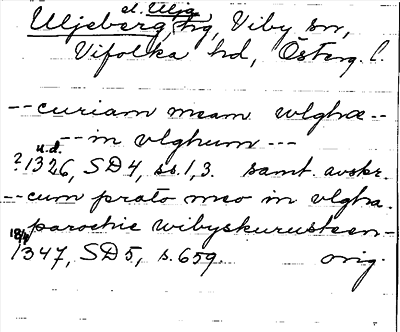 el. Ulja
Uljeberg, hg, Viby sn,
Vifolka hd, Österg. l.
--curiam meam vlghæ--
--in vlghum---
u.d.
?1326, SD4, ss. 1, 3. samt. avskr.
--cum prato meo in vlgha.
parochie wibyskurusteen-
18/4
1347, SD5, s. 659. orig.